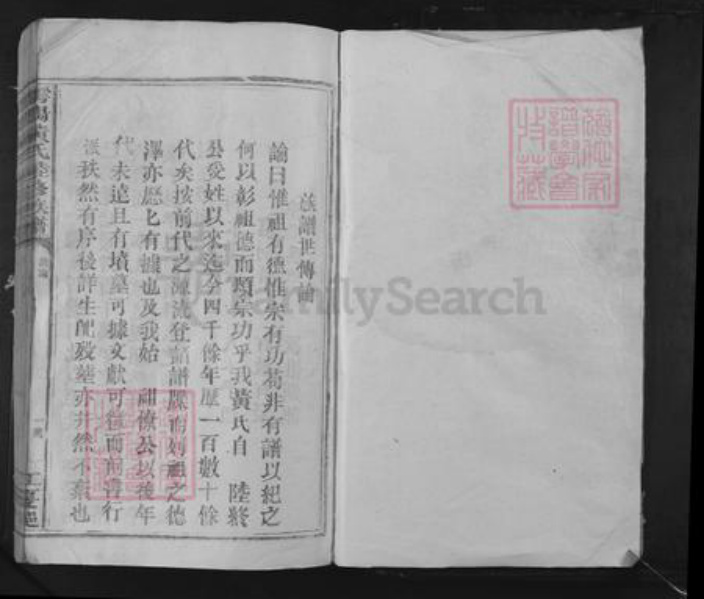 族譜世傳論
論曰惟祖有德惟宗有功苟非有譜以紀之
何以彰祖德而顯宗功乎我黃氏自 陸終
公受姓以來迄今四千餘年歷一百數十餘
代矣按前代之源流登諸譜牒而始祖之德
澤亦歷匕有據也及我始 祖僚公以後年
代未遠且有墳墓可據文獻可徵而前書行
秩然有序後詳生配歿塟亦井然不紊也
黃氏 修族譜
江夏
FamilySearch